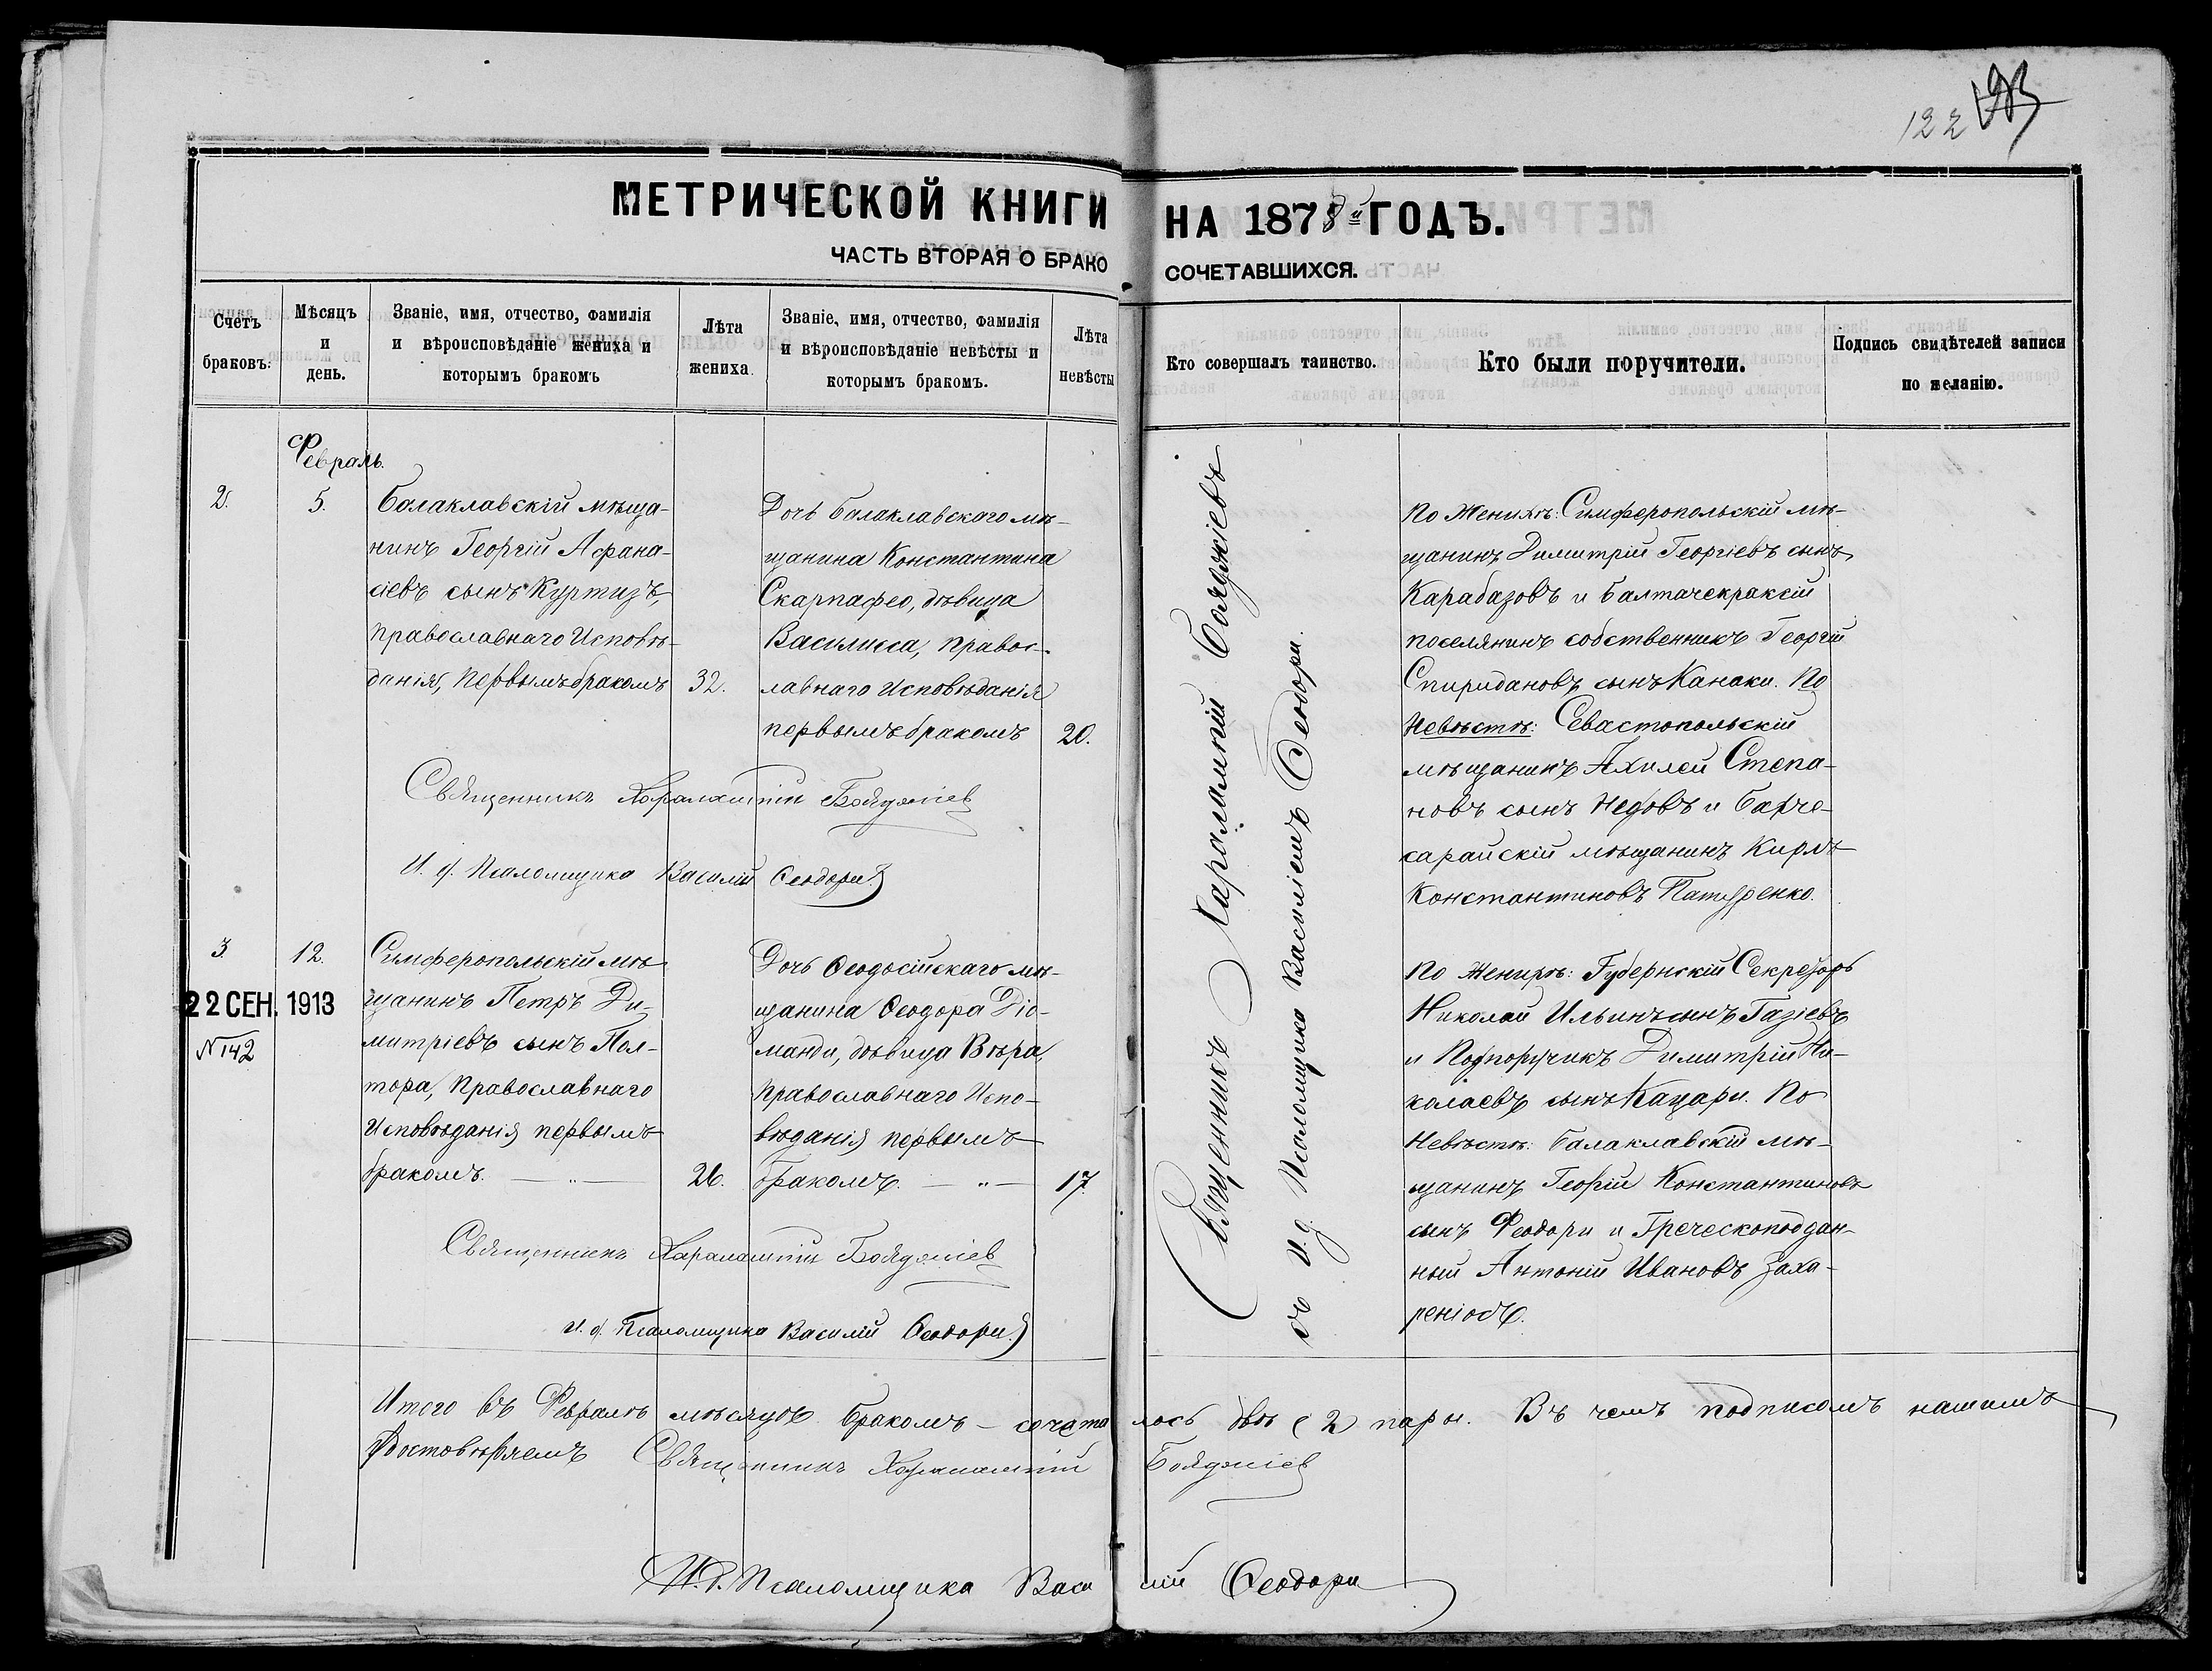 122
МЕТРИЧЕСКОЙ КНИГИ НА 1878й ГОДЪ.
ЧАСТЬ ВТОРАЯ О БРАКОСОЧЕТАВШИХСЯ.
Счетъ браковъ.
Мѣсяцъ и день.
Званіе, имя, отчество, фамилія и вѣроисповѣданіе жениха и которымъ бракомъ
Лѣта жениха
Званіе, имя, отчество, фамилія и вѣроисповѣданіе невѣсты и которымъ бракомъ.
Лѣта невѣсты
Кто совершалъ таинство.
Кто были поручители.
Подпись свидѣтелей записи по желанію.
Февраль.
2.
5.
Балаклавскій мѣща-
нинъ Георгій Афана-
сіевъ сынъ Куртизъ,
Православнаго Исповѣ-
данія, Первымъ бракомъ
32.
Дочь балаклавскаго мѣ-
щанина Константина
Скарпафео, дѣвица
Василисса, Правос-
лавнаго Исповѣданія
первымъ бракомъ
20.
Священникъ Харалампій Бояджіевъ
съ И.д. Псаломщика Василіемъ Ѳеодори.
По Женихѣ: Симферопольскій мѣ-
щанинъ Димитрій Георгіевъ сынъ
Карабазовъ и балтачекракскій
поселянинъ собственникъ Георгій
Спиридановъ сынъ Канаки. По
Невѣстѣ: Севастопольскій
мѣщанинъ Ахилей Степа-
новъ сынъ Недовъ и бахче-
сарайскій мѣщанинъ Кирлъ
Константиновъ Патуренко.
Священникъ Харалампій Бояджіев
И. д. Псаломщика Василій Ѳеодори
3.
12.
22 СЕН. 1913
№142
Симферопольскій мѣ-
щанинъ Петръ Ди-
митріевъ сынъ Пол-
тора, Православнаго
Исповѣданія первымъ
бракомъ. — „ —
26.
Дочь Ѳеодосійскаго мѣ-
щанина Ѳеодора Діо-
манди, дѣвица Вѣра,
Православнаго Испо-
вѣданія первымъ
бракомъ. — „ —
17.
По Женихѣ: Губернскій Секретарь
Николай Ильинъ сынъ Газіевъ
и Подпоручикъ Димитрій Ни-
колаевъ сынъ Кацари. По
Невѣстѣ: балаклавскій мѣ-
щанинъ Георгій Константиновъ
сынъ Ѳеодори и Греческоподдан-
ный Антоній Ивановъ Заха-
реніосъ.
Священникъ Харалампій Бояджіев
и. д. Псаломщика Василій Ѳеодори
Итого въ Февралѣ мѣсяцѣ бракомъ – сочеталось двѣ (2) пары. Въ чемъ подписомъ нашимъ
удостовѣряемъ Священникъ Харалампій Бояджіев
И. д. Псаломщика Василій Ѳеодори